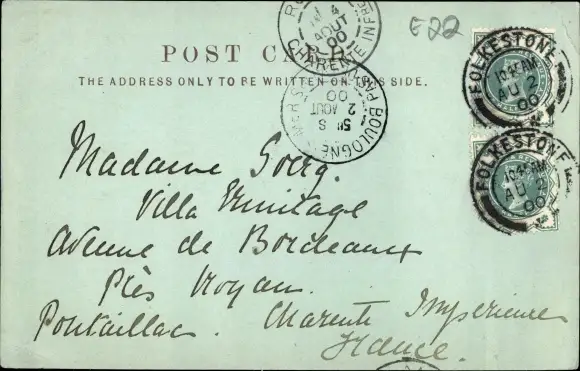 E22
POST CARD
THE ADDRESS ONLY TO BE WRITTEN ON THIS SIDE.
RO
4
AOUT
00
CHARENTE INFRE
BOULOGNE MER
5E S
2
AOUT
00
FOLKESTONE
10.45 AM
AU 2
00
FOLKESTONE
10.45 AM
AU 2
00
Madame Goerg.
Villa Ermitage
Avenue de Bordeaux
Près Royan.
Pontaillac. Charente Inferieure
France.